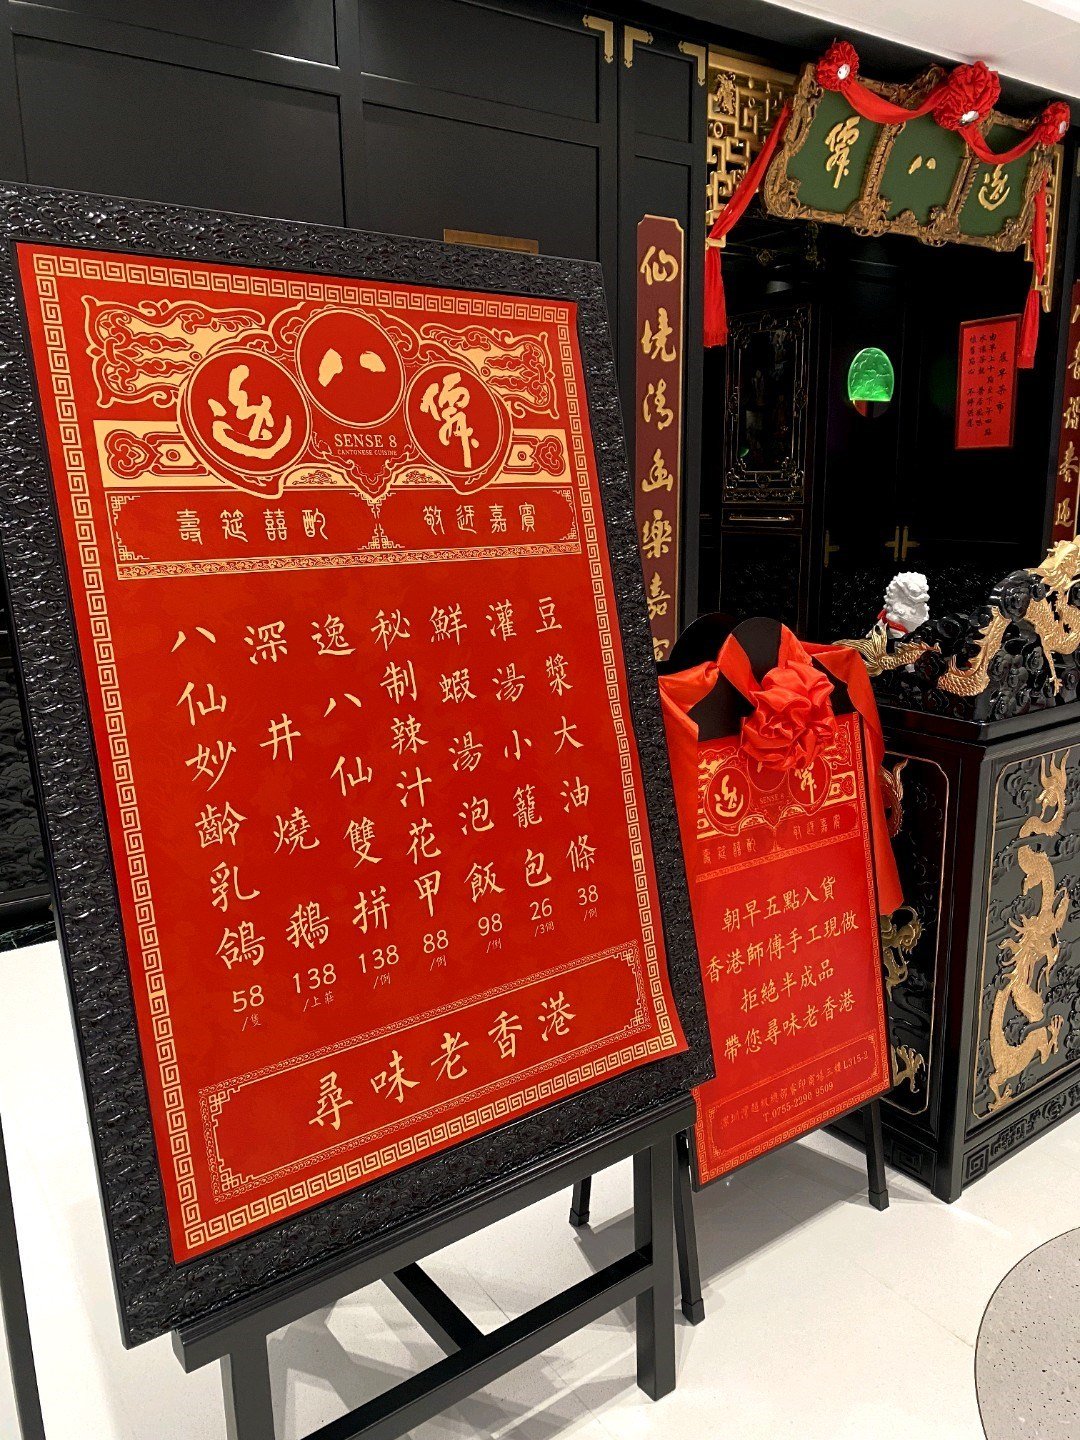 逸
八
仙
SENSE 8
CANTONESE CUISINE
壽筵囍酌
敬迓嘉賓
八仙妙齡乳鴿
58
/隻
深井燒鵝
138
/上莊
逸八仙雙拼
138
/例
秘制辣汁花甲
88
/例
鮮蝦湯泡飯
98
/例
灌湯小籠包
26
/3個
豆漿大油條
38
/例
尋味老香港
仙境清幽樂嘉
八
逸
逸
八
SENSE 8
壽筵囍酌
敬迓嘉賓
朝早五點入貨
香港師傅手工現做
拒絕半成品
帶您尋味老香港
T 0755-3290 9509